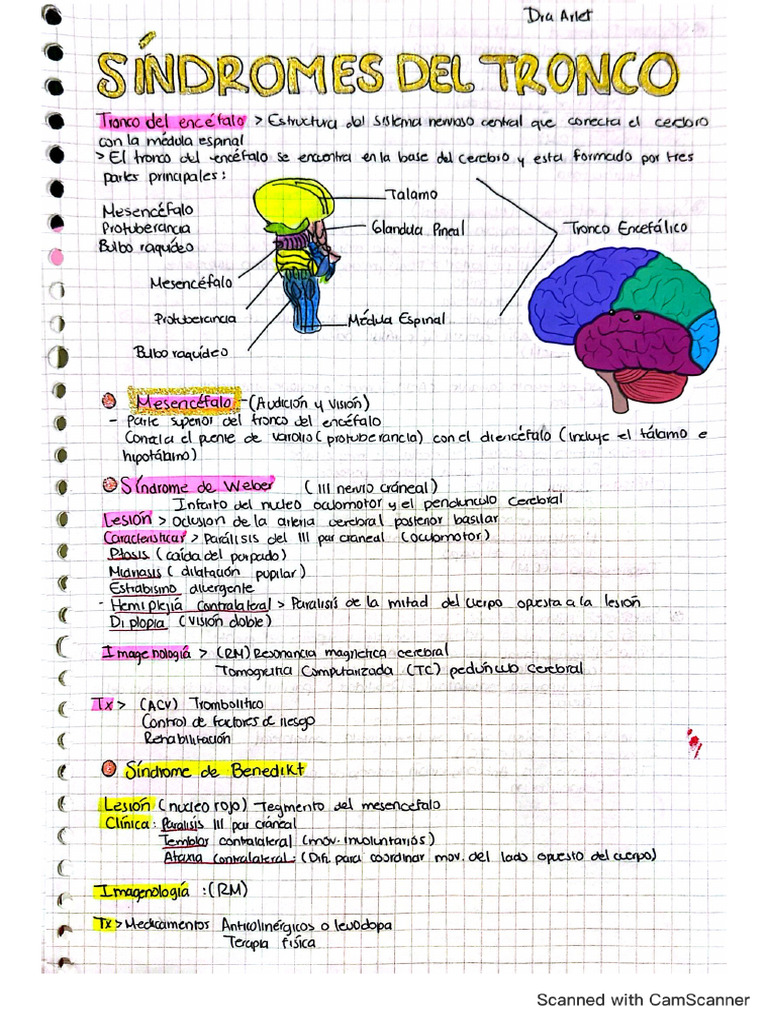 Dra Arlet
SÍNDROMES DEL TRONCO
Tronco del encéfalo > Estructura del sistema nervioso central que conecta el cerebro
con la médula espinal
> El tronco del encéfalo se encuentra en la base del cerebro y esta formado por tres
partes principales:
Mesencéfalo
Protuberancia
Bulbo raquídeo
Talamo
Glandula Pineal
Tronco Encefálico
Mesencéfalo
Protuberancia
Médula Espinal
Bulbo raquídeo
Mesencéfalo - (Audición y Visión)
- Parte superior del tronco del encéfalo
Conecta el puente de varolio (protuberancia) con el diencéfalo (incluye el tálamo e
hipotálamo)
Síndrome de Weber (III nervio cráneal)
Infarto del nucleo oculomotor y el pendunculo cerebral
Lesión > Oclusion de la arteria cerebral posterior basilar
Caracteristicas > Parálisis del III par craneal (oculomotor)
Ptosis (caída del parpado)
Midriasis (dilatación pupilar)
Estrabismo divergente
- Hemiplejía contralateral > Paralisis de la mitad del cuerpo opuesta a la lesión
Diplopia (Visión doble)
Imagenología > (RM) Resonancia magnetica cerebral
Tomografia Computarizada (TC) pedúnculo cerebral
Tx > (ACV) Trombolitico
Control de factores de riesgo
Rehabilitación
Síndrome de Benedikt
Lesión (nucleo rojo) Tegmento del mesencéfalo
Clínica: Paralisis III par cráneal
Temblor contralateral (mov. involuntarios)
Ataxia contralateral: (Dif. para coordinar mov. del lado opuesto del cuerpo)
Imagenología : (RM)
Tx > Medicamentos Anticolinérgicos o levodopa
Terapia física
Scanned with CamScanner